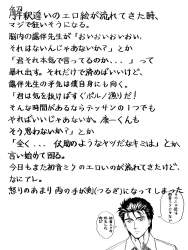 解釈違いのエロ絵が流れてきた時、
マジで狂いそうになる。
脳内の露伴先生が「おいおいおいおい
それはないんじゃあないか？」とか
「君それ本気で言ってるのか...」って
暴れ出す。それだけで済めばいいけど、
露伴先生の矛先は僕自身にも向く、
「君は気を抜けばすぐポルノ漁りだ！
そんな時間があるならデッサンの1つでも
やればいいじゃないか。康一くんも
そう思わないか？」とか
「全く... 仗助のようなヤツだなキミは」とか
言い始めて困る。
今日もまた初音ミクのエロいのが流れてきたけど、
なにでし。
怒りのあまり両の手が剣(つるぎ)になってしまった